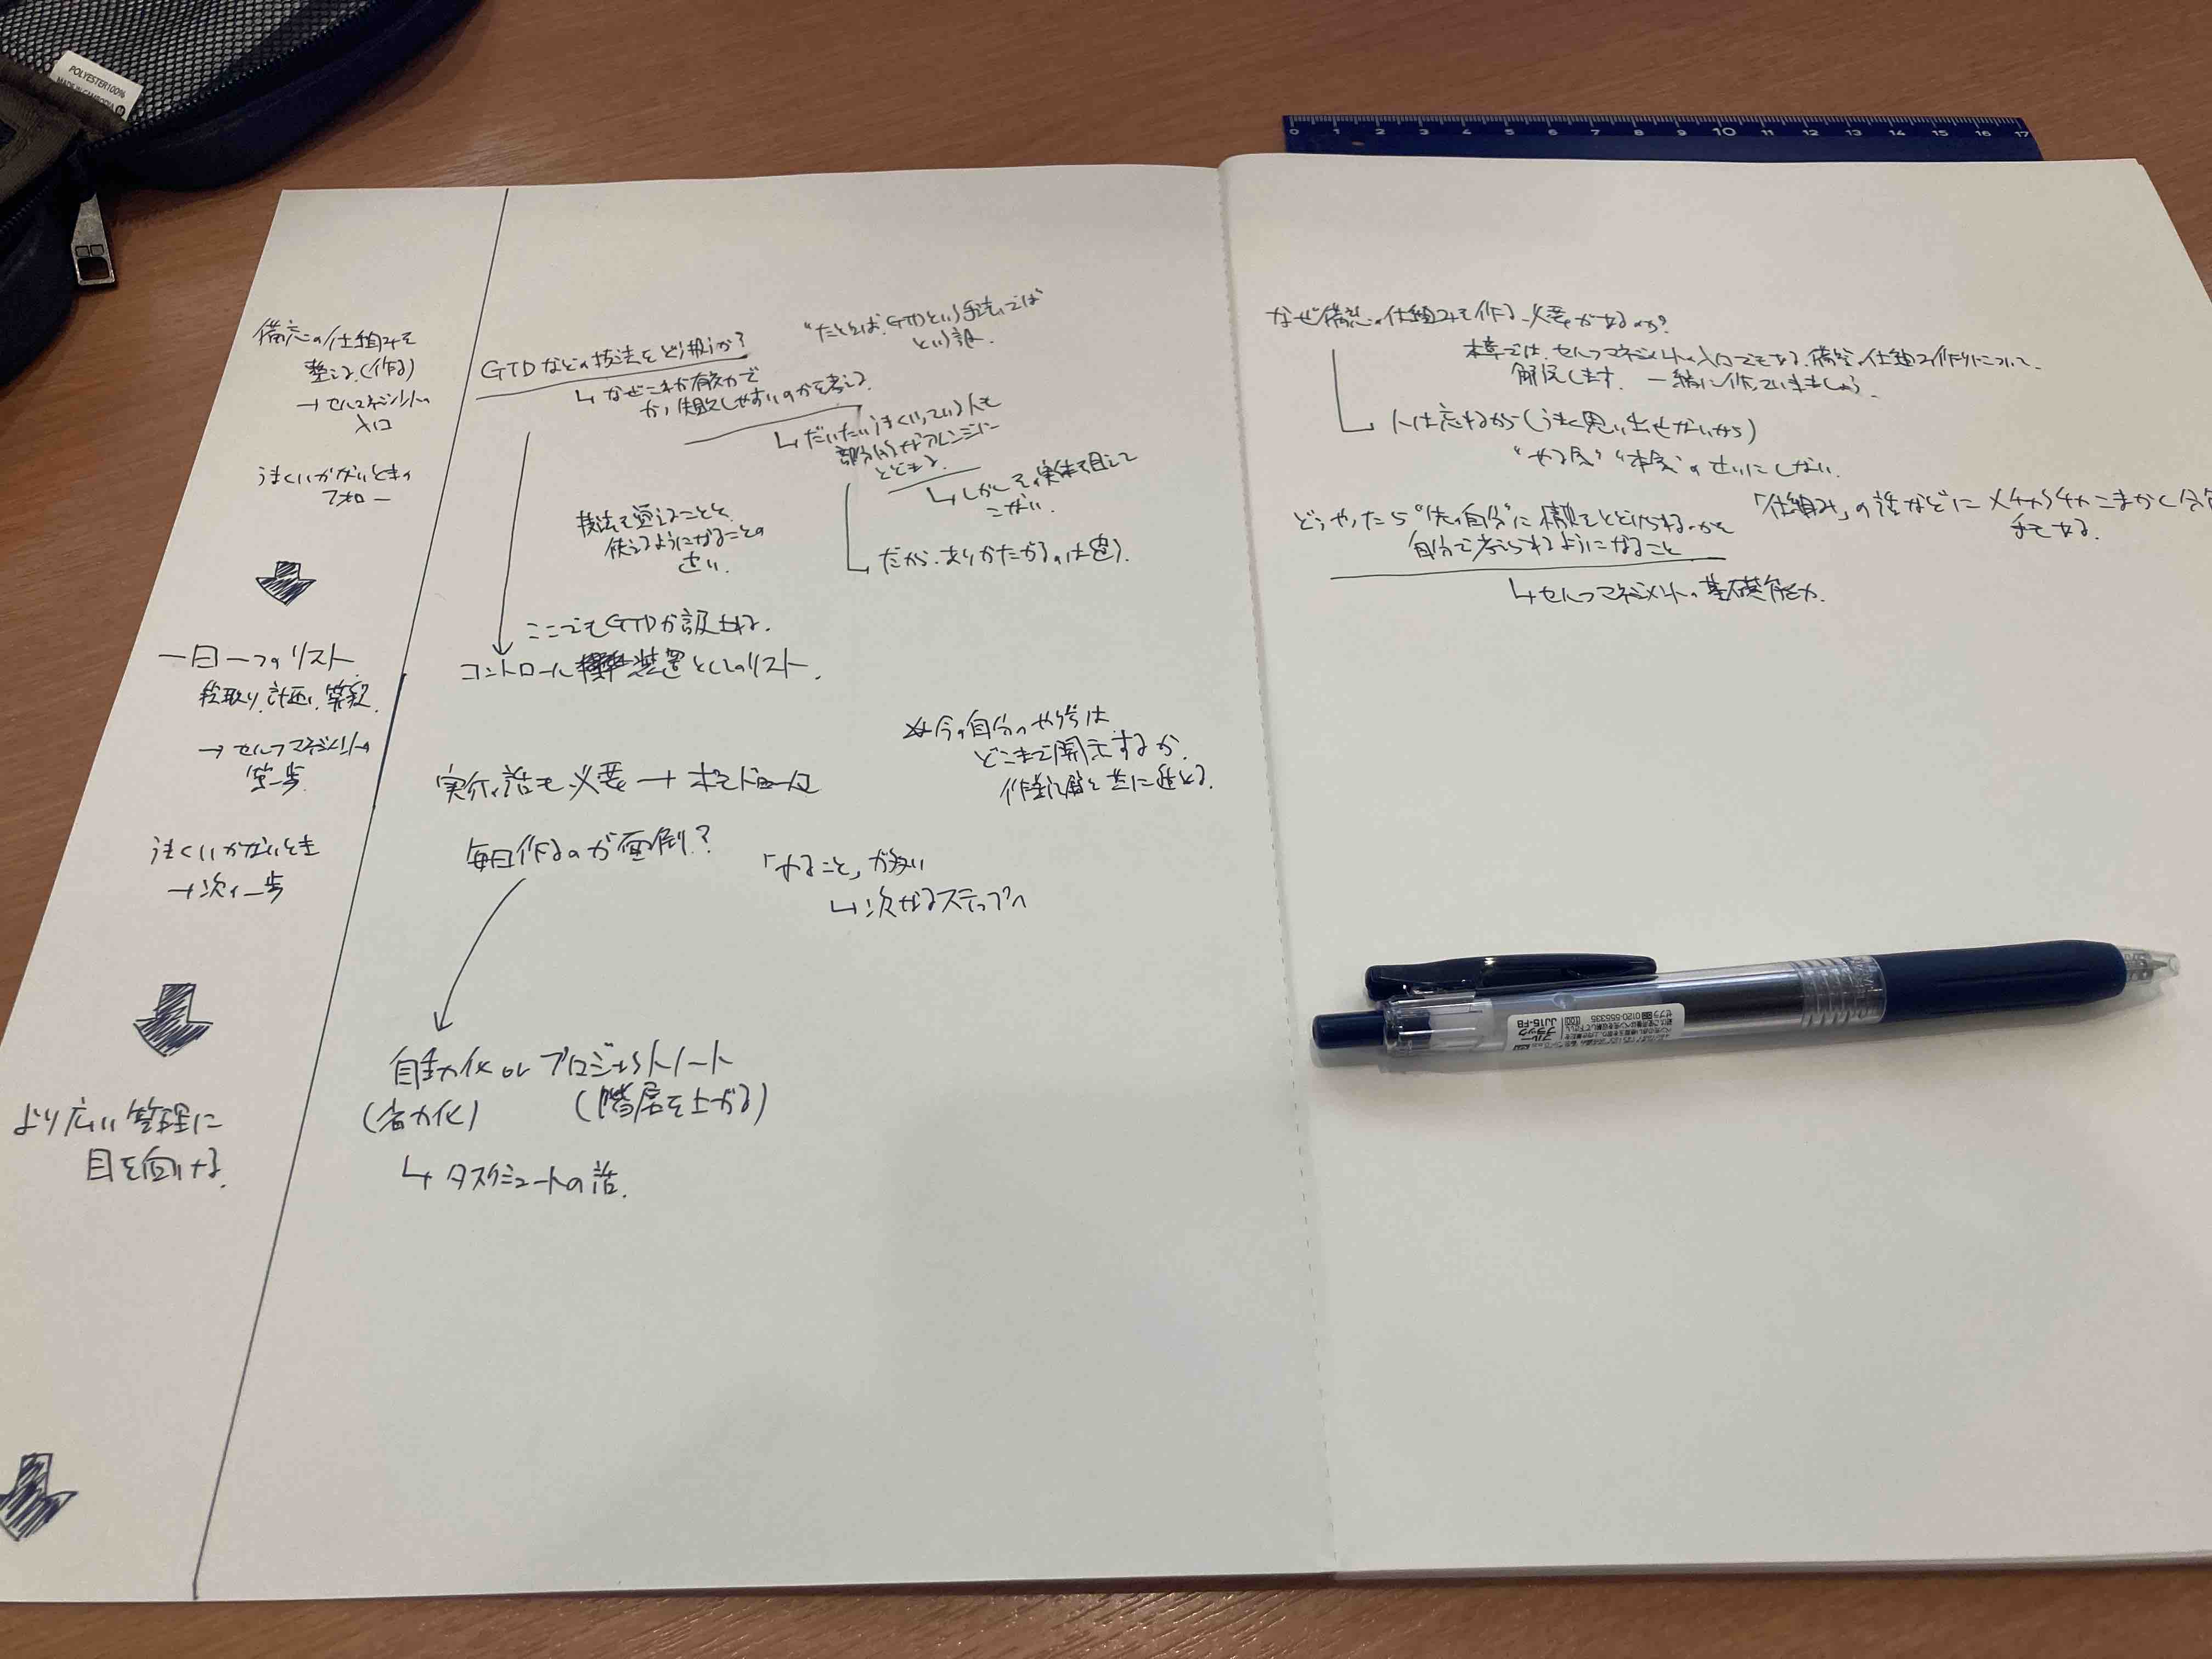 備忘の仕組みを
整える(作る)
→ セルフマネジメントの
入口
うまくいかないときの
フォロー
一日一つのリスト
段取り、計画、実行
→ セルフマネジメントの
第一歩
うまくいかないとき
→ 次の一歩
より広い管理に
目を向ける
GTDなどの技法をどう扱うか?
↳ なぜこれが有効で
かつ失敗しやすいのかを考える
"たとえば、GTDという手法では"
という話。
↳ だいたいうまくいっている人も
部分的なアレンジに
とどまる
↳ しかしその実体を目にして
こない
↳ だから、ありがたがるのは違う。
技法を覚えることと、
使えるようになることの
違い。
ここでもGTDが
コントロール 装置としてのリスト
※今の自分のやり方は
どこまで開示するか
実行の話も必要 → ポモドーロ
毎日作るのが面倒?
「やること」が多い
↳ 次なるステップへ
自動化 or プロジェクトノート
(省力化) (階層を上がる)
↳ タスクシュートの話。
なぜ備忘の仕組みを作る必要があるのか?
本章では、セルフマネジメントの入口でもある備忘の仕組み作りについて
解説します。一緒に作っていきましょう。
↳ 人は忘れるから(うまく思い出せないから)
"やる気" "本気"のせいにしない。
どうやったら"先の自分"に情報をとどけられるかを
自分で考えられるようになること
↳ セルフマネジメントの基礎能力。
「仕組み」の話などにメチャクチャこまかく
手もある。
0 1 2 3 4 5 6 7 8 9 10 11 12 13 14 15 16 17
POLYESTER100%
MADE IN CAMBODIA
JJ15-FB
ブルーブラック
ゼブラ 0120-555335
100